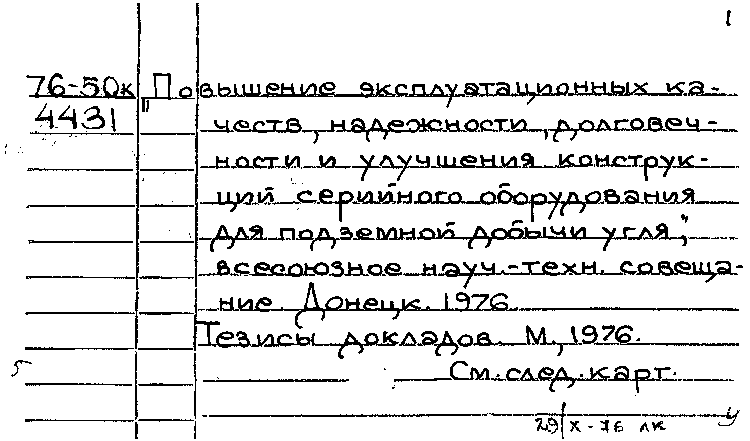 1
76-50к
4431
"Повышение эксплуатационных ка-
честв, надежности, долговеч-
ности и улучшения конструк-
ций серийного оборудования
для подземной добычи угля",
всесоюзное науч.-техн. совеща-
ние. Донецк. 1976.
Тезисы докладов. М., 1976.
См. след. карт.
5
29/X-76 лк
у